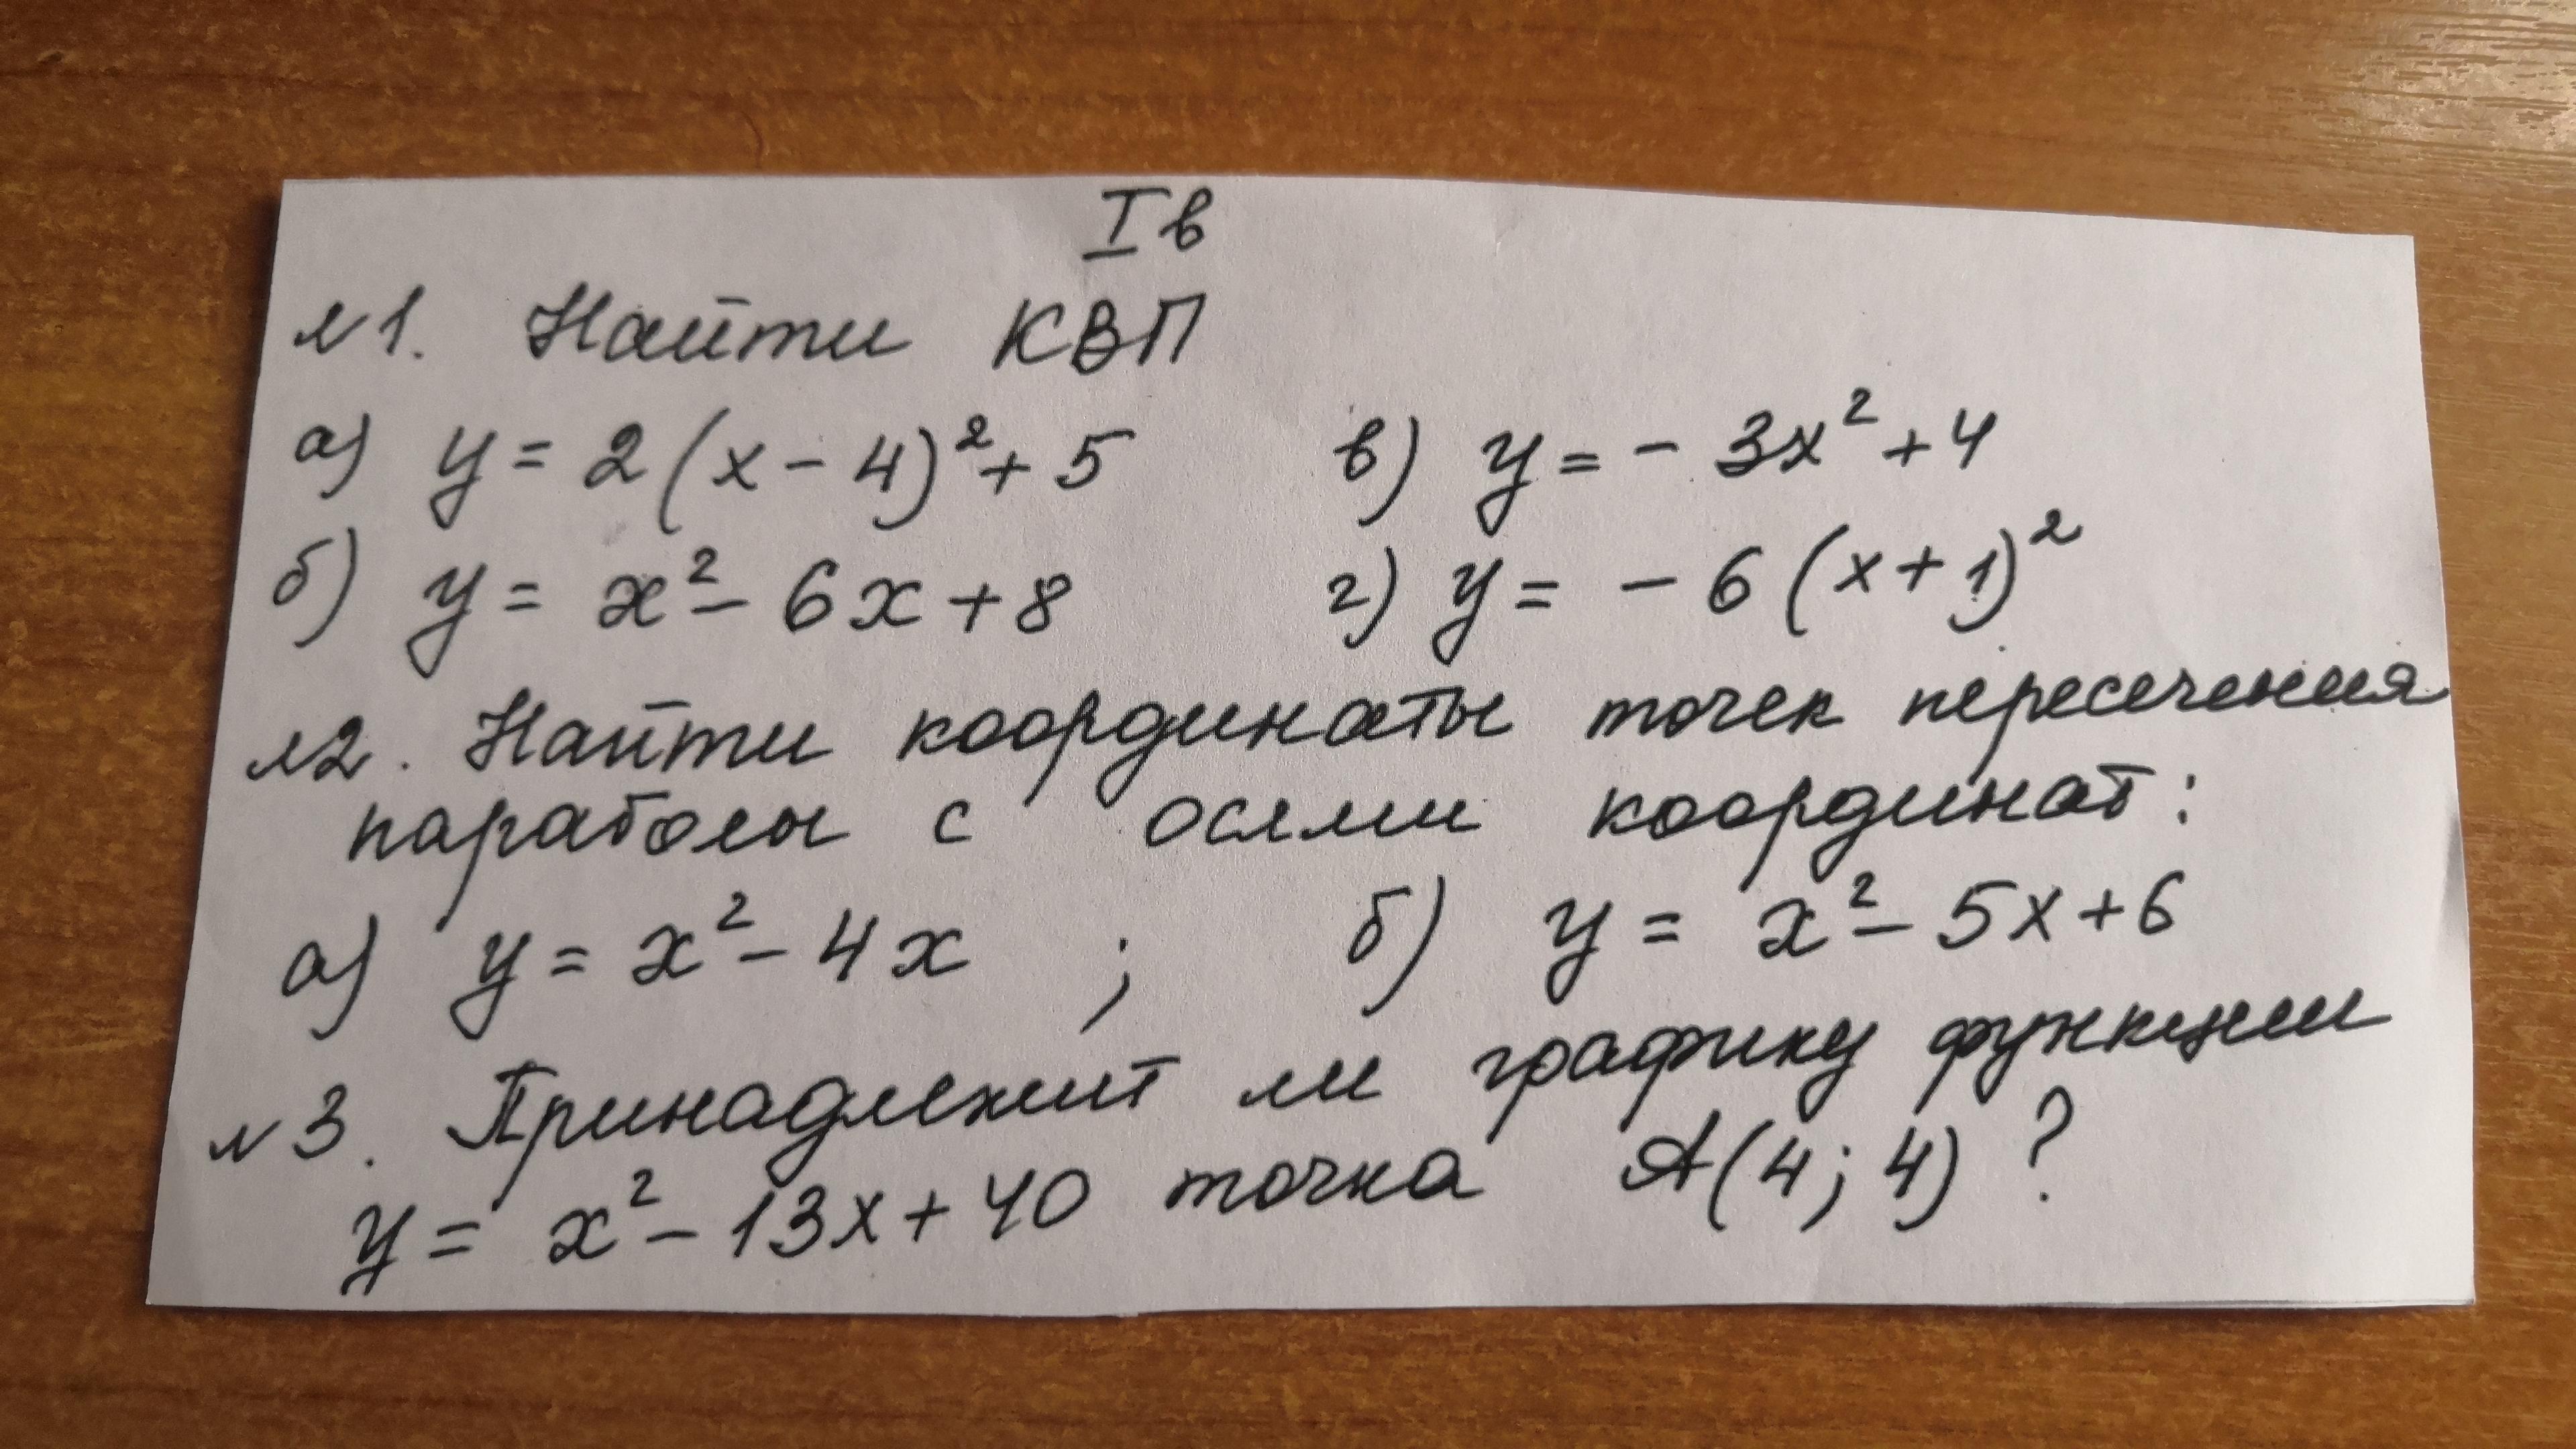 I в
№1. Найти КВП
а) y = 2(x - 4)² + 5 в) y = - 3x² + 4
б) y = x² - 6x + 8 г) y = - 6 (x + 1)²
№2. Найти координаты точек пересечения
параболы с осями координат:
а) y = x² - 4x ; б) y = x² - 5x + 6
№3. Принадлежит ли графику функции
y = x² - 13x + 40 точка А(4; 4) ?